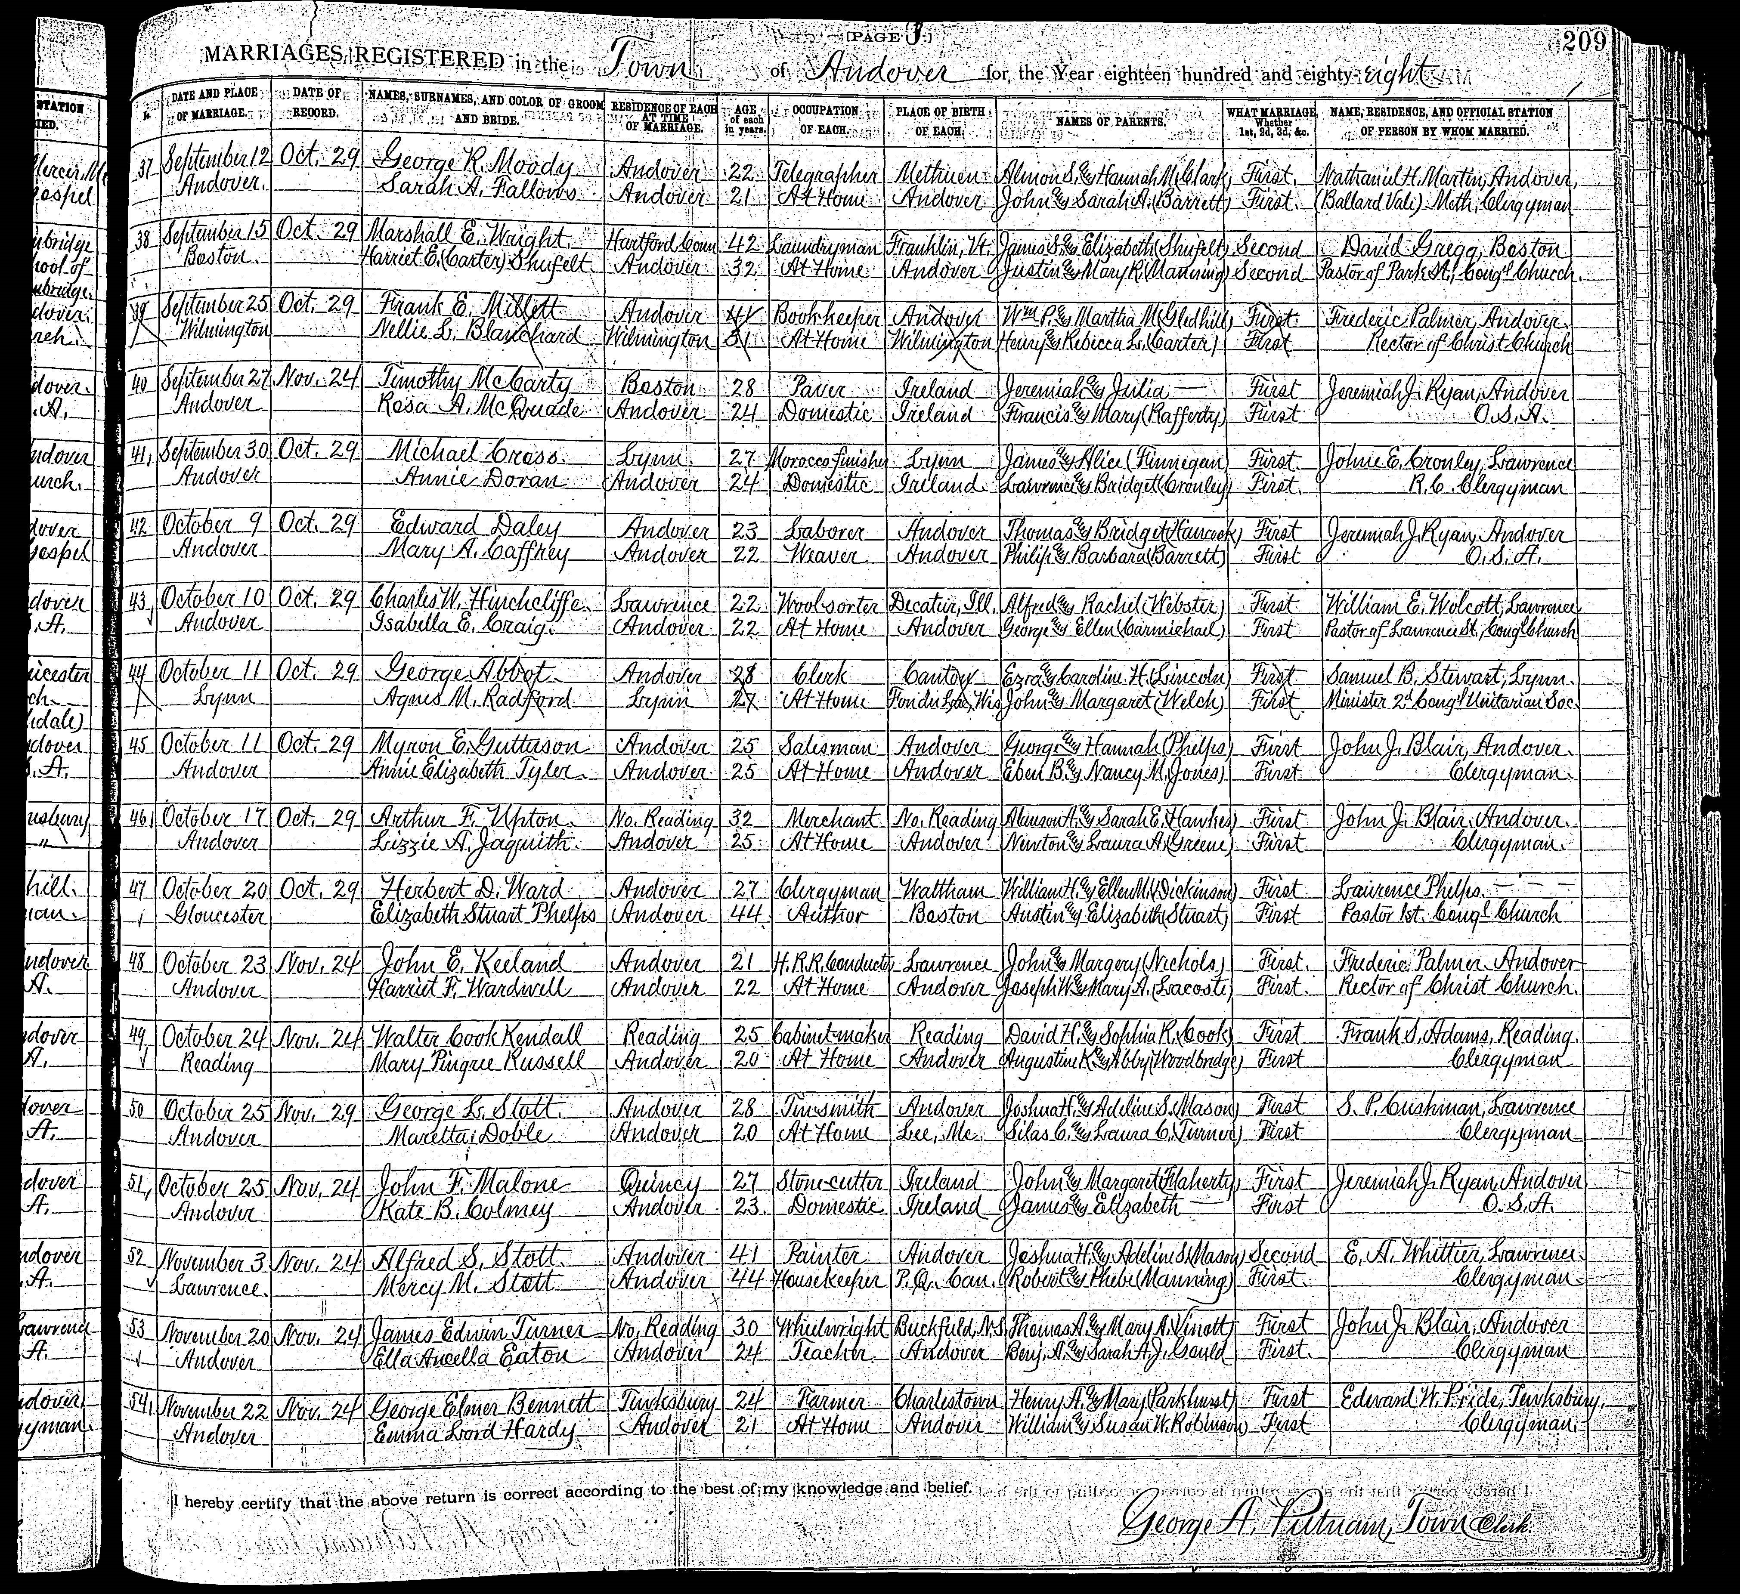 PAGE 3
209
MARRIAGES REGISTERED in the Town of Andover for the Year eighteen hundred and eighty-eight
DATE AND PLACE OF MARRIAGE. DATE OF RECORD. NAMES, SURNAMES, AND COLOR OF GROOM AND BRIDE. RESIDENCE OF EACH AT TIME OF MARRIAGE. AGE of each in years. OCCUPATION OF EACH. PLACE OF BIRTH OF EACH. NAMES OF PARENTS. WHAT MARRIAGE, Whether 1st, 2d, 3d, &c. NAME, RESIDENCE, AND OFFICIAL STATION OF PERSON BY WHOM MARRIED.
37 September 12 Oct. 29 George R. Moody Andover 22 Telegrapher Methuen Almon S. & Hannah M. (Clark) First. Nathaniel H. Martin, Andover,
Andover. Sarah A. Fallows Andover 21 At Home Andover John & Sarah A. (Barrett) First. (Ballard Vale) Meth. Clergyman
38 September 15 Oct. 29 Marshall E. Wright Hartford Conn 42 Laundryman Franklin, Vt. James S. & Elizabeth (Shufelt) Second David Gregg, Boston
Boston. Harriet E. (Carter) Shufelt Andover 32 At Home Andover Justin & Mary K. (Manning) Second Pastor of Park St., Cong'l Church.
39 September 25 Oct. 29 Frank E. Millett Andover Bookkeeper Andover Wm P. & Martha M. (Gledhill) First Frederic Palmer, Andover.
Wilmington Nellie L. Blanchard Wilmington At Home Wilmington Henry & Rebecca L. (Carter) First Rector of Christ Church
40 September 27 Nov. 24 Timothy McCarty Boston 28 Paver Ireland Jeremiah & Julia — First Jeremiah J. Ryan, Andover
Andover Rosa A. McQuade Andover 24 Domestic Ireland Francis & Mary (Rafferty) First O.S.A.
41 September 30 Oct. 29 Michael Cross. Lynn. 27 Morocco finisher Lynn James & Alice (Finnegan) First Johnie E. Cronley, Lawrence
Andover Annie Doran Andover 24 Domestic Ireland Lawrence & Bridget (Cronley) First. R.C. Clergyman
42 October 9 Oct. 29 Edward Daley Andover 23 Laborer Andover Thomas & Bridget (Hancock) First Jeremiah J. Ryan, Andover
Andover Mary A. Caffrey Andover 22 Weaver Andover Philip & Barbara (Barrett) First O.S.A.
43 October 10 Oct. 29 Charles W. Hinchcliffe Lawrence 22 Woolsorter Decatur, Ill. Alfred & Rachel (Webster) First William E. Wolcott, Lawrence
Andover Isabella E. Craig. Andover 22 At Home Andover George & Ellen (Carmichael) First Pastor of Lawrence St., Cong'l Church
44 October 11 Oct. 29 George Abbot Andover 28 Clerk Canton Ezra & Caroline H. (Lincoln) First Samuel B. Stewart, Lynn.
Lynn Agnes M. Radford Lynn 27 At Home Fon du Lac, Wis John & Margaret (Welch) First Minister 2d Cong'l Unitarian Soc.
45 October 11 Oct. 29 Myron E. Gutterson Andover 25 Salesman Andover George & Hannah (Phelps) First John J. Blair, Andover.
Andover Annie Elizabeth Tyler Andover 25 At Home Andover Eben B. & Nancy M. (Jones) First Clergyman.
46 October 17 Oct. 29 Arthur F. Upton. No. Reading 32 Merchant No. Reading & Sarah E. (Hawkes) First John J. Blair, Andover.
Andover Lizzie A. Jaquith Andover 25 At Home Andover Newton & Laura A. (Greene) First Clergyman.
47 October 20 Oct. 29 Herbert D. Ward Andover 27 Clergyman Waltham William H. & Ellen M. (Dickinson) First Lawrence Phelps. — — —
Gloucester Elizabeth Stuart Phelps Andover 44 Author Boston Austin & Elizabeth (Stuart) First Pastor 1st. Cong'l Church
48 October 23 Nov. 24 John E. Keeland Andover 21 H.R.R. Conductor Lawrence John & Margery (Nichols) First. Frederic Palmer Andover
Andover Harriet F. Wardwell Andover 22 At Home Andover Joseph W. & Mary A. (Lacoste) First. Rector of Christ Church.
49 October 24 Nov. 24 Walter Cook Kendall Reading 25 Cabinet-maker Reading David H. & Sophia R. (Cook) First Frank S. Adams, Reading.
Reading Mary Pingree Russell Andover 20 At Home Andover Augustine K. & Abby (Woodbridge) First Clergyman
50 October 25 Nov. 29 George L. Stott. Andover 28 Tinsmith Andover Joshua H. & Adeline S. (Mason) First S. P. Cushman, Lawrence
Andover Maretta Doble Andover 20 At Home Lee, Me. Silas C. & Laura C. (Turner) First Clergyman
51 October 25 Nov. 24 John F. Malone Quincy 27 Stone-cutter Ireland John & Margaret (Flaherty) First Jeremiah J. Ryan, Andover
Andover Kate B. Colmey Andover 23 Domestic Ireland James & Elizabeth — First O.S.A.
52 November 3 Nov. 24 Alfred S. Stott. Andover 41 Painter Andover Joshua H. & Adeline S. (Mason) Second E. A. Whittier, Lawrence.
Lawrence. Mercy M. Stott Andover 44 Housekeeper P.Q. Can. Robert & Phebe (Manning) First. Clergyman
53 November 20 Nov. 24 James Edwin Turner No. Reading 30 Wheelwright Buckfield, N.S. Thomas A. & Mary A. (Vinott) First John J. Blair, Andover
Andover Ella Ancella Eaton Andover 24 Teacher. Andover Benj. A. & Sarah A. J. Gould First. Clergyman
54 November 22 Nov. 24 George Elmer Bennett Tewksbury 24 Farmer Charlestown Henry A. & Mary (Parkhurst) First Edward W. Pride, Tewksbury,
Andover Emma Lord Hardy Andover 21 At Home Andover William & Susan W. Robinson) First Clergyman.
I hereby certify that the above return is correct according to the best of my knowledge and belief.
George A. Putnam, Town Clerk.